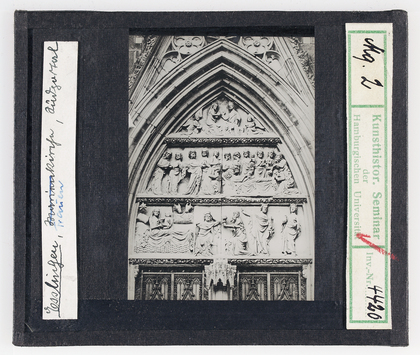 Esslingen, Frauenkirche, Südportal
Mg. 2
Kunsthistor. Seminar
der
Hamburgischen Universität
Inv.-Nr. 4420